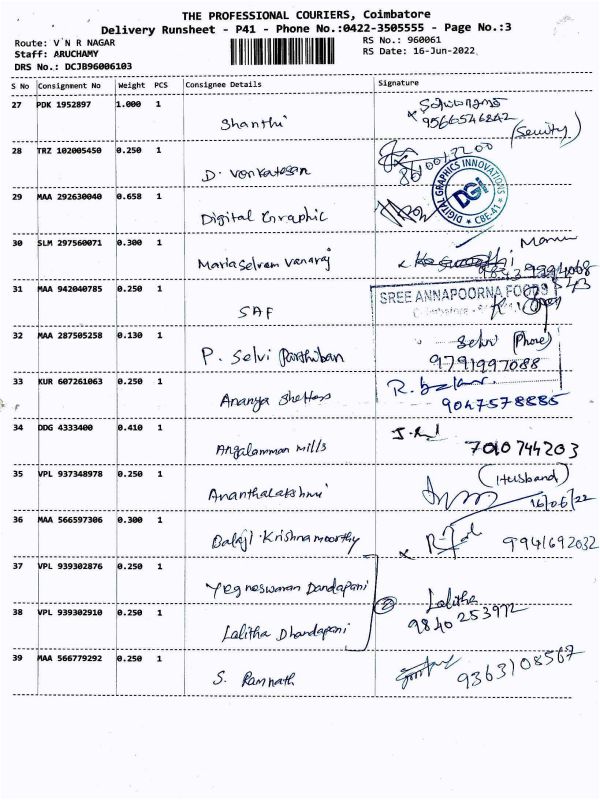 THE PROFESSIONAL COURIERS, Coimbatore
Delivery Runsheet - P41 - Phone No.:0422-3505555 - Page No.:3
Route: V N R NAGAR RS No.: 960061
Staff: ARUCHAMY RS Date: 16-Jun-2022
DRS No.: DCJB96006103
S No Consignment No Weight PCS Consignee Details Signature
27 PDK 1952897 1.000 1 Shanthi
9566546842
(Secuity)
28 TRZ 102005450 0.250 1 D. Venkatesan
29 MAA 292630040 0.658 1 Digital Graphic
DIGITAL GRAPHICS INNOVATIONS
DGi
CBE-41
30 SLM 297560071 0.300 1 Mariaselvam Vanaraj
31 MAA 942040785 0.250 1 SAF
SREE ANNAPOORNA FOODS
32 MAA 287505258 0.130 1 P. Selvi Parthiban
Selvi (Phone)
9791997088
33 KUR 607261063 0.250 1 Ananya Shelters
9047578885
34 DDG 4333400 0.410 1 Angalamman Mills
7010744203
35 VPL 937348978 0.250 1 Ananthalakshmi
(Husband)
16/06/22
36 MAA 566597306 0.300 1 Balaji Krishnamoorthy
9941692032
37 VPL 939302876 0.250 1 Yegneswaran Dandapani
2
Lalitha
9840253972
38 VPL 939302910 0.250 1 Lalitha Dhandapani
39 MAA 566779292 0.250 1 S. Ramnath
9363108567